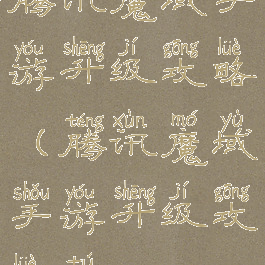 腾讯魔域手
yóu shēng jí gōng lüè
游升级攻略
téng xùn mó yù
(腾讯魔域
shǒu yóu shēng jí gōng
手游升级攻
lüè tú